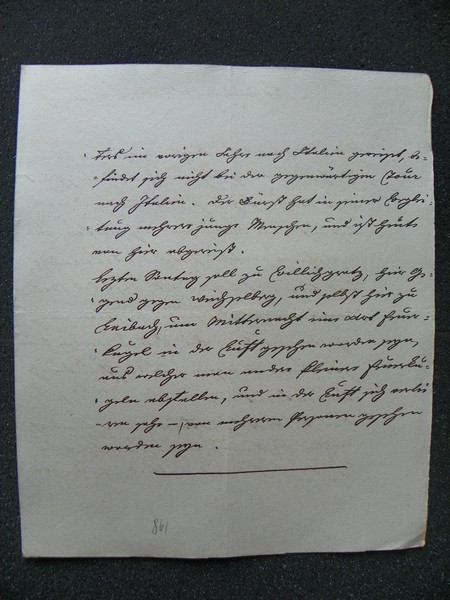 ters im vorigen Jahre nach Italien gereiset, be-
findet sich nicht bei der gegenwärtigen Tour
nach Italien. Der Fürst hat in seiner Beglei-
tung mehrere junge Menschen, und ist heute
von hier abgereist.
Letzten Sontag soll zu Billichgratz, hier Ge-
gens gegen Weichselberg, und selbst hier zu
Laibach, um Mitternacht eine Art Feuer-
kugel in der Luft gesehen worden seyn,
aus welcher man andere kleinere Feuerku-
geln abfallen, und in der Luft sich verlie-
ren sahe – von mehreren Personen gesehen
worden seyn.
861